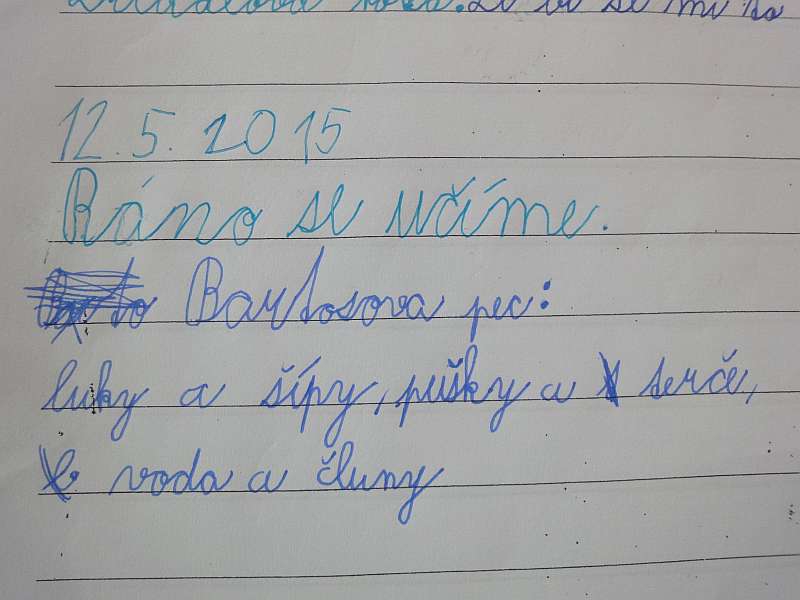 se mi
12.5.2015
Ráno se učíme.
Bartosova pec:
luky a šípy, pušky a terče,
voda a čluny